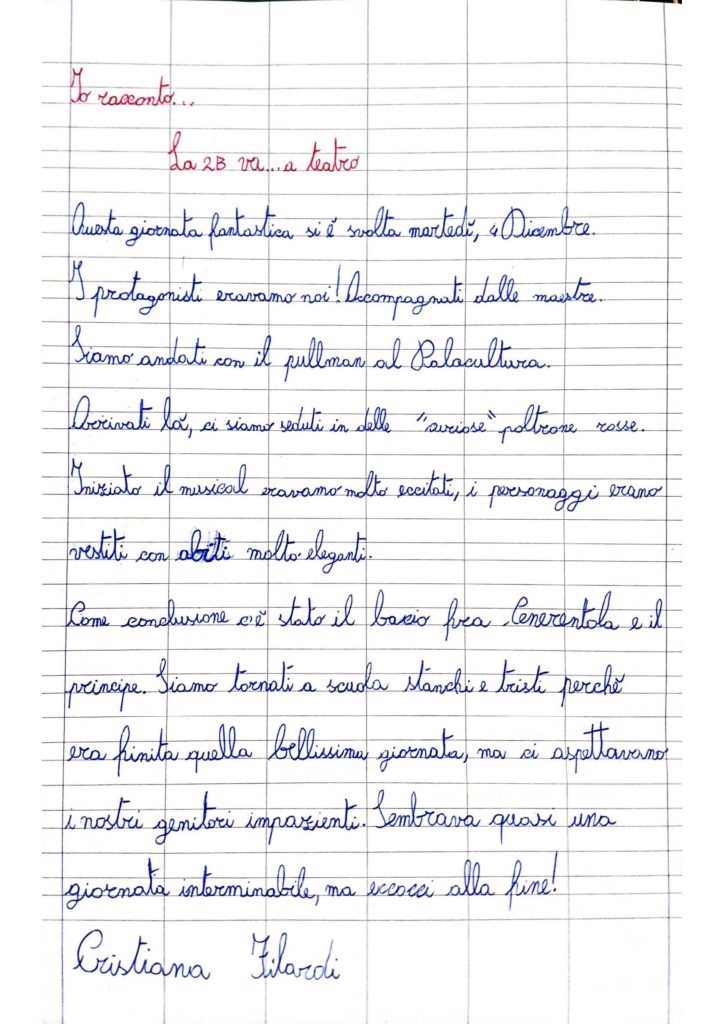 Io racconto...
La 2B va...a teatro
Questa giornata fantastica si è svolta martedì, 4 Dicembre.
I protagonisti eravamo noi! Accompagnati dalle maestre.
Siamo andati con il pullman al Palacultura.
Arrivati là, ci siamo seduti in delle "curiose" poltrone rosse.
Iniziato il musical eravamo molto eccitati, i personaggi erano
vestiti con abiti molto eleganti.
Come conclusione c'è stato il bacio fra Cenerentola e il
principe. Siamo tornati a scuola stanchi e tristi perchè
era finita quella bellissima giornata, ma ci aspettavano
i nostri genitori impazienti. Sembrava quasi una
giornata interminabile, ma eccoci alla fine!
Cristiana Filardi